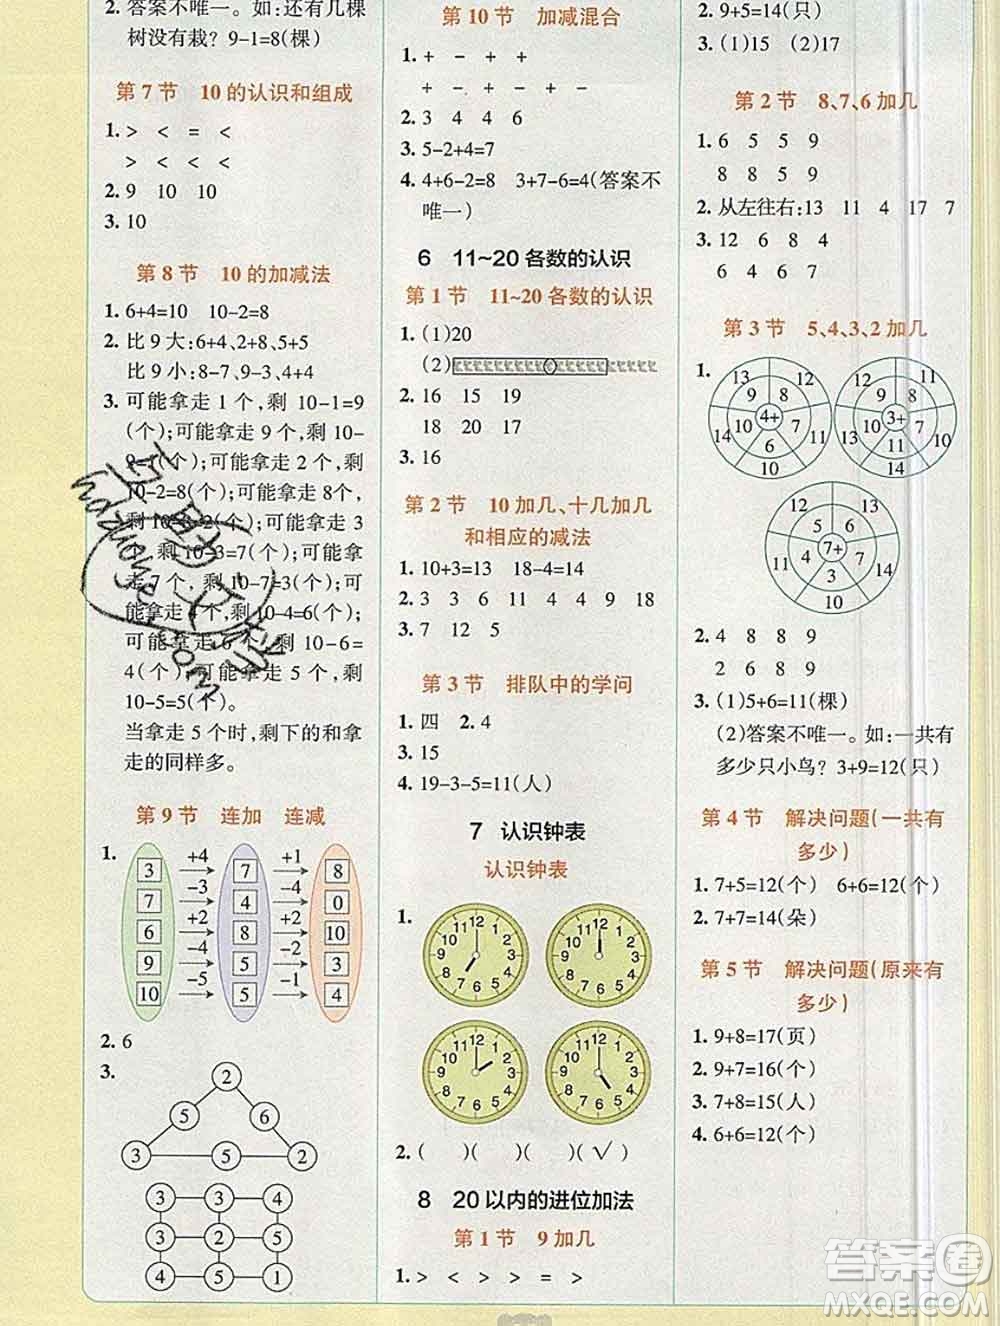 2. 答案不唯一。如:还有几棵
树没有栽? 9-1=8(棵)
第 7 节 10 的认识和组成
1. > < = <
> < < <
2. 9 10 10
3. 10
第 8 节 10 的加减法
1. 6+4=10 10-2=8
2. 比 9 大:6+4、2+8、5+5
比 9 小:8-7、9-3、4+4
3. 可能拿走 1 个,剩 10-1=9
(个);可能拿走 9 个,剩 10-
9=1(个);可能拿走 2 个,剩
10-2=8(个);可能拿走 8个,
剩 10-8=2(个);可能拿走 3
个,剩 10-3=7(个);可能拿
走 7 个,剩 10-7=3(个);可能
拿走 4 个,剩 10-4=6(个);
可能拿走 6 个,剩 10-6=
4(个);可能拿走 5 个,剩
10-5=5(个)。
当拿走 5 个时,剩下的和拿
走的同样多。
第 9 节 连加 连减
1. 3 +4 7 +1 8
7 -3 4 -4 0
6 +2 8 +2 10
9 -4 5 -2 3
10 -5 5 -1 4
2. 6
3.
2
5 6
3 5 3
3 3 4
3 2 5
4 5 1
第 10 节 加减混合
1. + - + +
+ - + - + -
2. 3 4 4 6
3. 5-2+4=7
4. 4+6-2=8 3+7-6=4(答案不
唯一)
6 11~20 各数的认识
第 1 节 11~20 各数的认识
1. (1)20
(2)
2. 16 15 19
18 20 17
3. 16
第 2 节 10 加几、十几加几
和相应的减法
1. 10+3=13 18-4=14
2. 3 13 6 16 9 19 8 18
3. 7 12 5
第 3 节 排队中的学问
1. 四 2. 4
3. 15
4. 19-3-5=11(人)
7 认识钟表
认识钟表
1.
12 1 2 3 4 5 6 7 8 9 10 11
12 1 2 3 4 5 6 7 8 9 10 11
12 1 2 3 4 5 6 7 8 9 10 11
12 1 2 3 4 5 6 7 8 9 10 11
2. ( )( )( )(√)
8 20 以内的进位加法
第 1 节 9 加几
1. > < > > = >
2. 9+5=14(只)
3. (1)15 (2)17
第 2 节 8、7、6 加几
1. 6 5 5 9
8 8 5 9
2. 从左往右:13 11 4 17 7
3. 12 6 8 4
6 4 6 7
第 3 节 5、4、3、2 加几
1.
4+ 9 8 7 6 10 13 12 11 10 14
3+ 9 8 7 11 10 12 11 10 14 13
7+ 5 6 4 3 5 12 13 11 10 12
2. 4 8 8 9
2 6 8 9
3. (1)5+6=11(棵)
(2)答案不唯一。如:一共有
多少只小鸟? 3+9=12(只)
第 4 节 解决问题(一共有
多少)
1. 7+5=12(个) 6+6=12(个)
2. 7+7=14(朵)
第 5 节 解决问题(原来有
多少)
1. 9+8=17(页)
2. 9+7=16(个)
3. 7+8=15(人)
4. 6+6=12(个)
答案圈
MXQE.COM